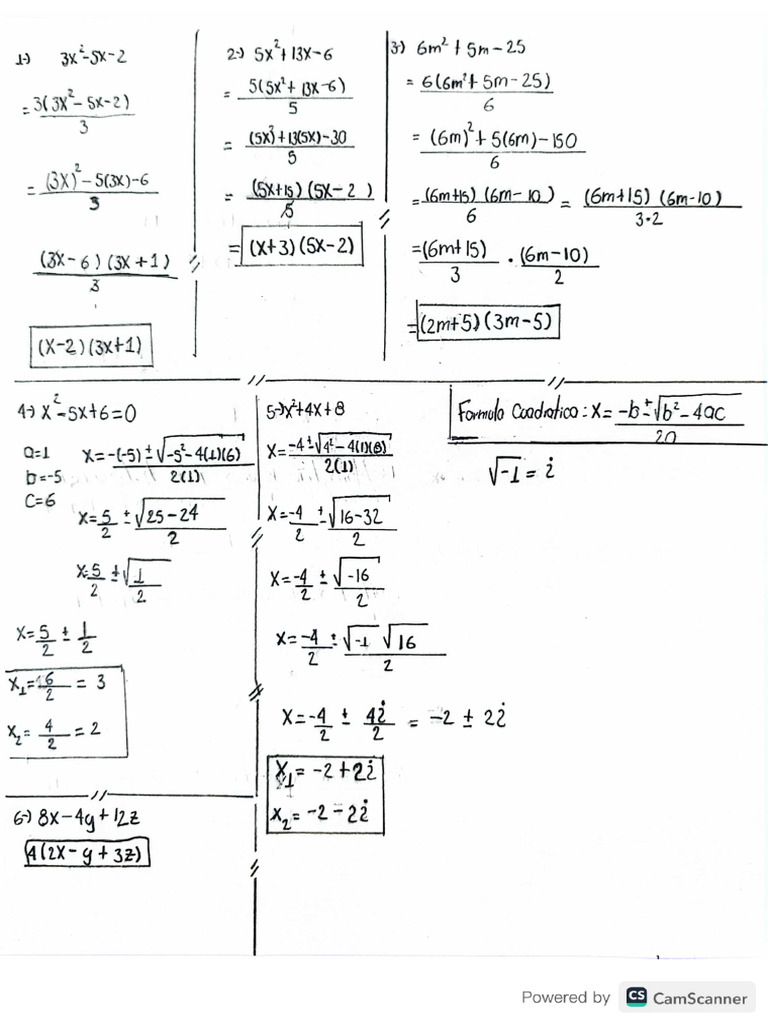 1-) 3x²-5x-2
= 3(3x²-5x-2)/3
= (3x)²-5(3x)-6/3
(3x-6)(3x+1)/3
(x-2)(3x+1)
2-) 5x²+13x-6
= 5(5x²+13x-6)/5
= (5x)²+13(5x)-30/5
= (5x+15)(5x-2)/5
= (x+3)(5x-2)
3-) 6m²+5m-25
= 6(6m²+5m-25)/6
= (6m)²+5(6m)-150/6
= (6m+15)(6m-10)/6 = (6m+15)(6m-10)/3·2
= (6m+15)/3 · (6m-10)/2
= (2m+5)(3m-5)
4-) x²-5x+6=0
a=1
b=-5
c=6
x= -(-5)±√-5²-4(1)(6)/2(1)
x= 5/2 ± √25-24/2
x= 5/2 ± √1/2
x= 5/2 ± 1/2
x₁= 6/2 = 3
x₂= 4/2 = 2
5-) x²+4x+8
x= -4±√4²-4(1)(8)/2(1)
x= -4/2 ± √16-32/2
x= -4/2 ± √-16/2
x= -4/2 ± √-1 √16/2
x= -4/2 ± 4i/2 = -2 ± 2i
x₁ = -2+2i
x₂ = -2-2i
Formula Cuadratica: x= -b±√b²-4ac/2a
√-1 = i
6-) 8x-4y+12z
4(2x-y+3z)
Powered by CS CamScanner